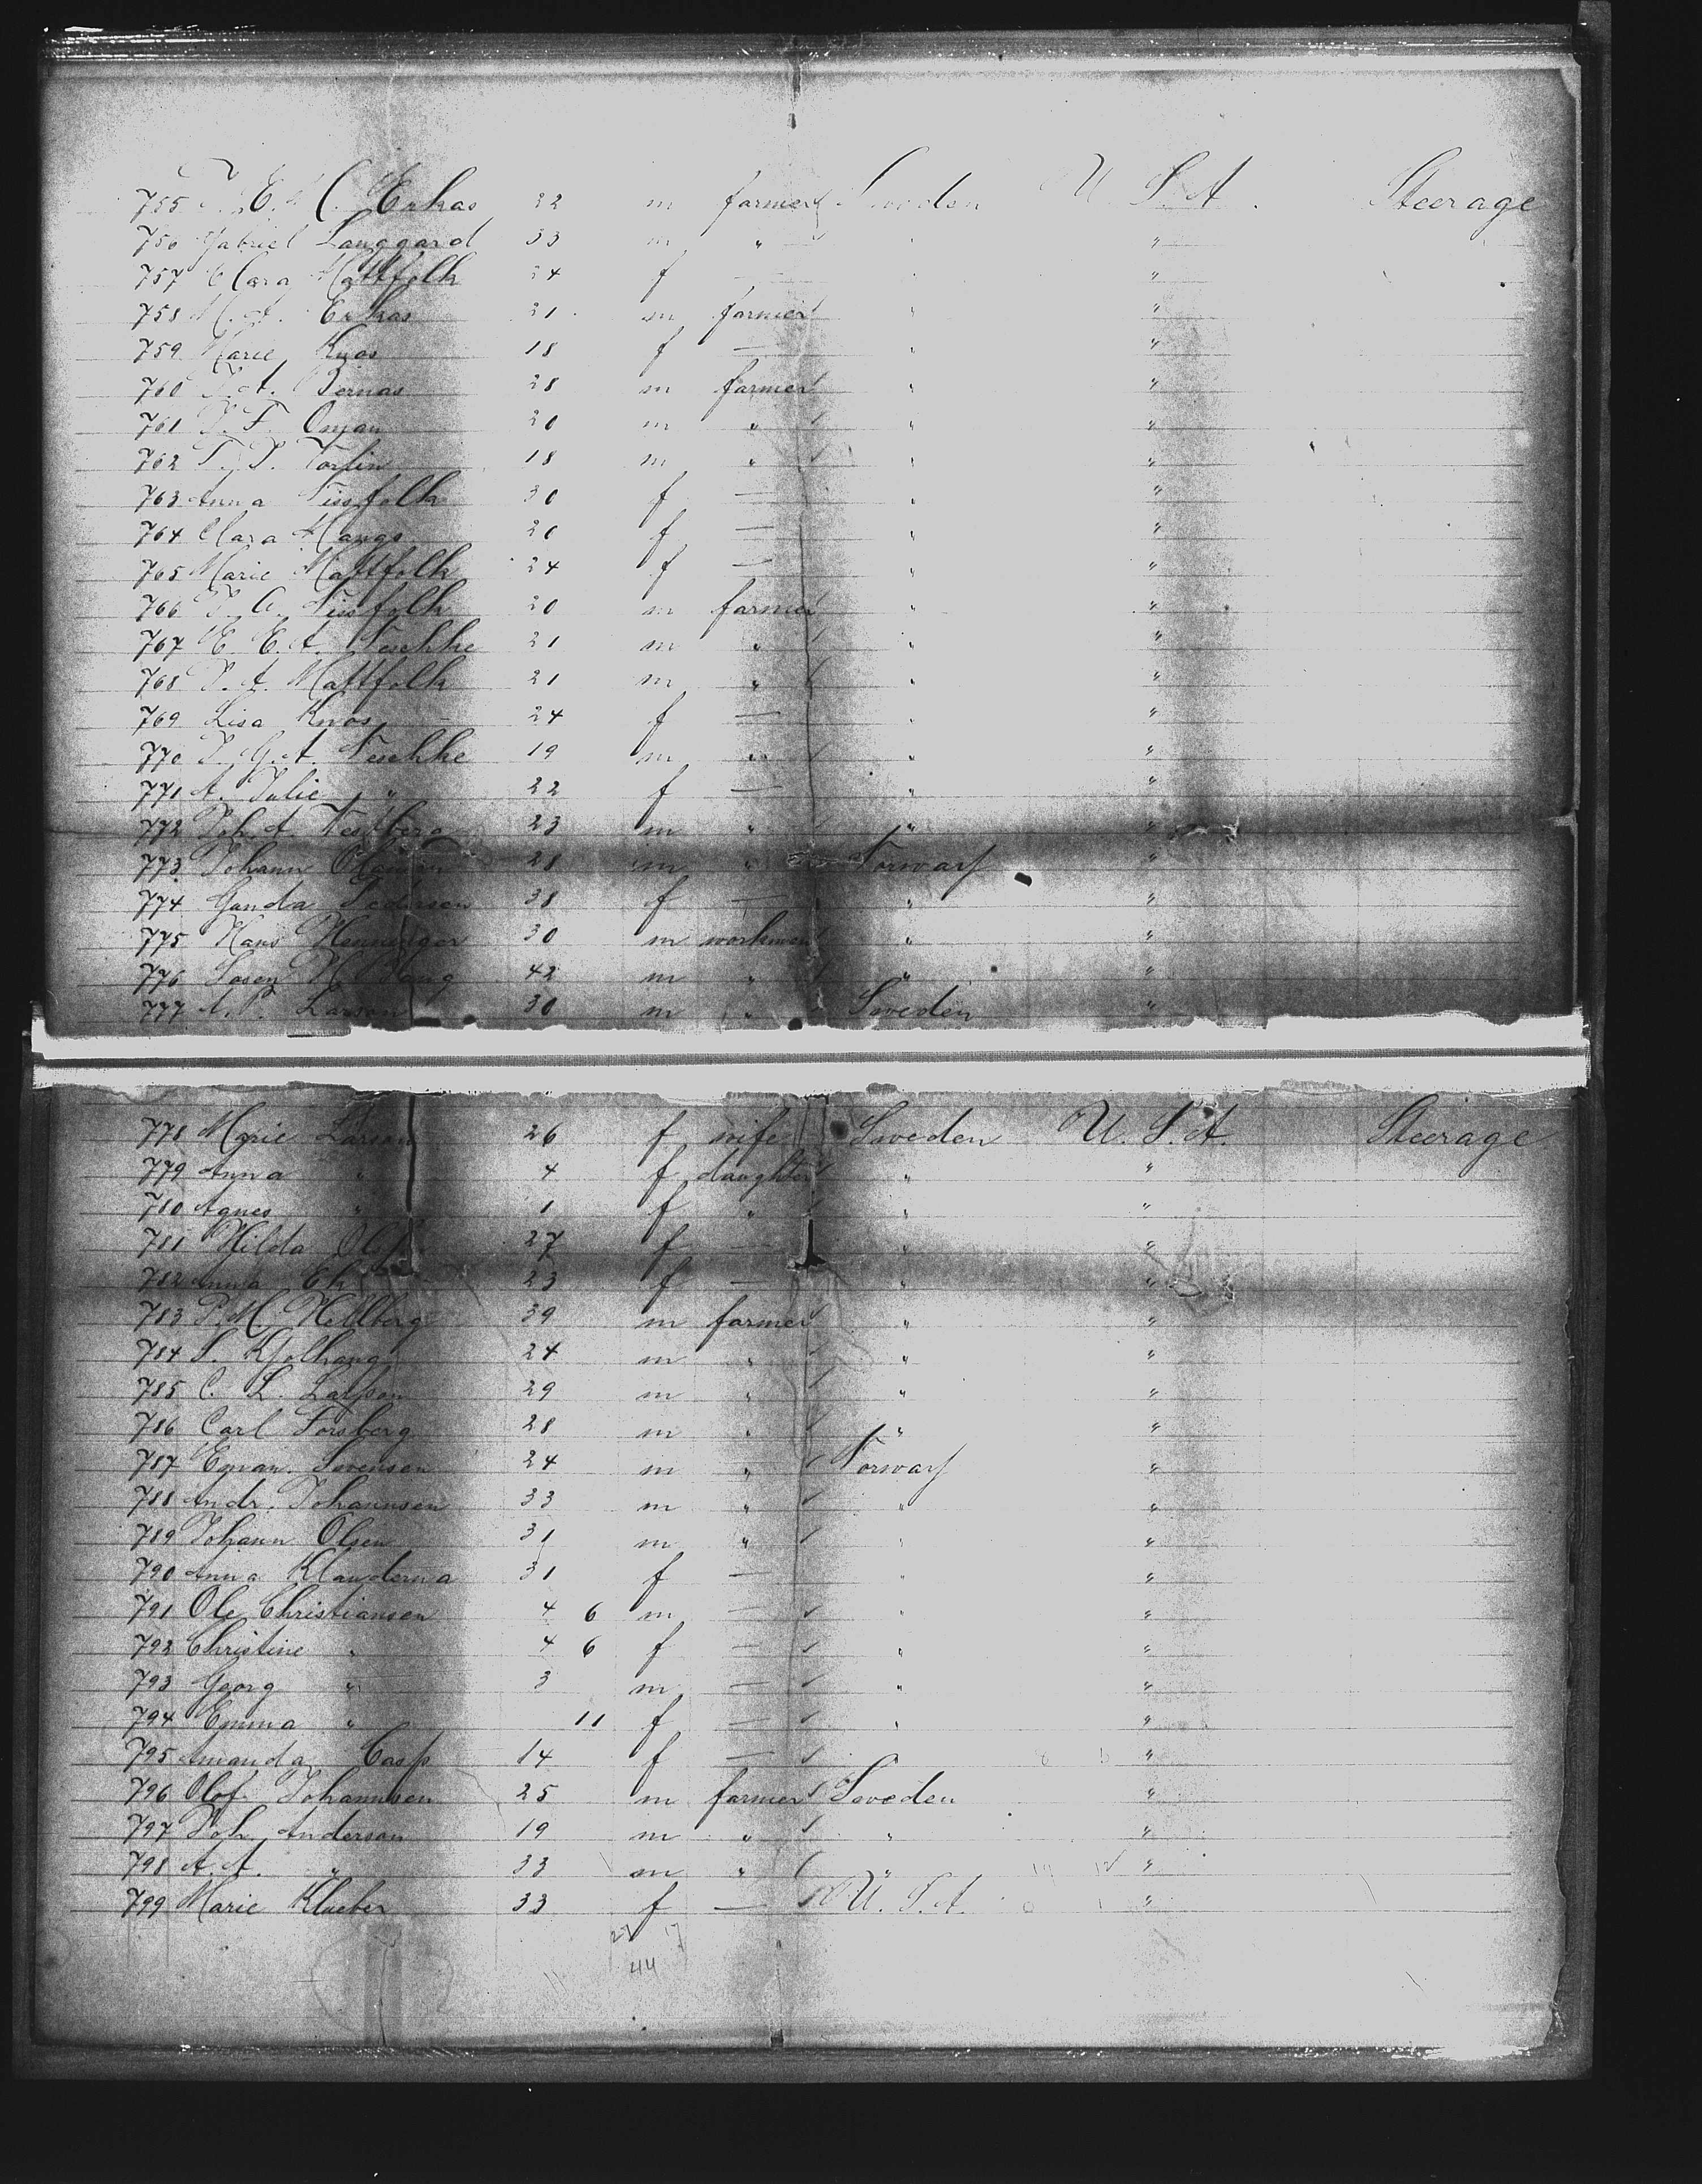 755 E. Erkas 22 m farmer Sweden U. S. A. Steerage
756 Gabriel Langgard 33 m " " "
757 Clara Mattfolk 24 f — " "
758 M. A. Erkas 21 m farmer " "
759 Marie Knos 18 f — " "
760 J. A. Pernas 28 m farmer " "
761 J. F. Onjan 20 m " " "
762 T. J. Torlin 18 m " " "
763 Anna Fissfolk 30 f — " "
764 Clara Mangs 20 f — " "
765 Marie Mattfolk 24 f — " "
766 J. A. Fissfolk 20 m farmer " "
767 E. E. A. Teschke 21 m " " "
768 J. A. Mattfolk 21 m " " "
769 Lisa Knos 24 f — " "
770 J. G. A. Teschke 19 m " " "
771 A. Julie " 22 f — " "
772 Joh. A. Testberg 23 m " " "
773 Johann 28 m " Norway "
774 Ganda Pedersen 38 f — " "
775 Hans Henninger 30 m workmen " "
776 42 m " " "
777 A. P. Larson 30 m " Sweden "
778 Marie Larson 26 f wife Sweden U. S. A. Steerage
779 Anna " 4 f daughter " "
780 Agnes " 1 f " " "
781 Hilda 27 f — " "
782 Anna Ek 23 f — " "
783 P. M. Hellberg 39 m farmer " "
784 S. Kjolhang 24 m " " "
785 C. L. Larsson 29 m " " "
786 Carl Forsberg 28 m " " "
787 Eman. Sorensen 24 m " Norway "
788 Andr. Johannsen 33 m " " "
789 Johann Olsen 31 m " " "
790 Anna Klauderna 31 f — " "
791 Ole Christiansen 4 6 m — " "
792 Christine " 4 6 f — " "
793 Georg " 3 m — " "
794 Emma " 11 f — " "
795 Amanda Casp 14 f — " "
796 Olof Johannsen 25 m farmer Sweden "
797 Joh. Anderson 19 m " " "
798 A. A. " 33 m " " "
799 Marie Klaeber 33 f — U. S. A. "
27 17
44